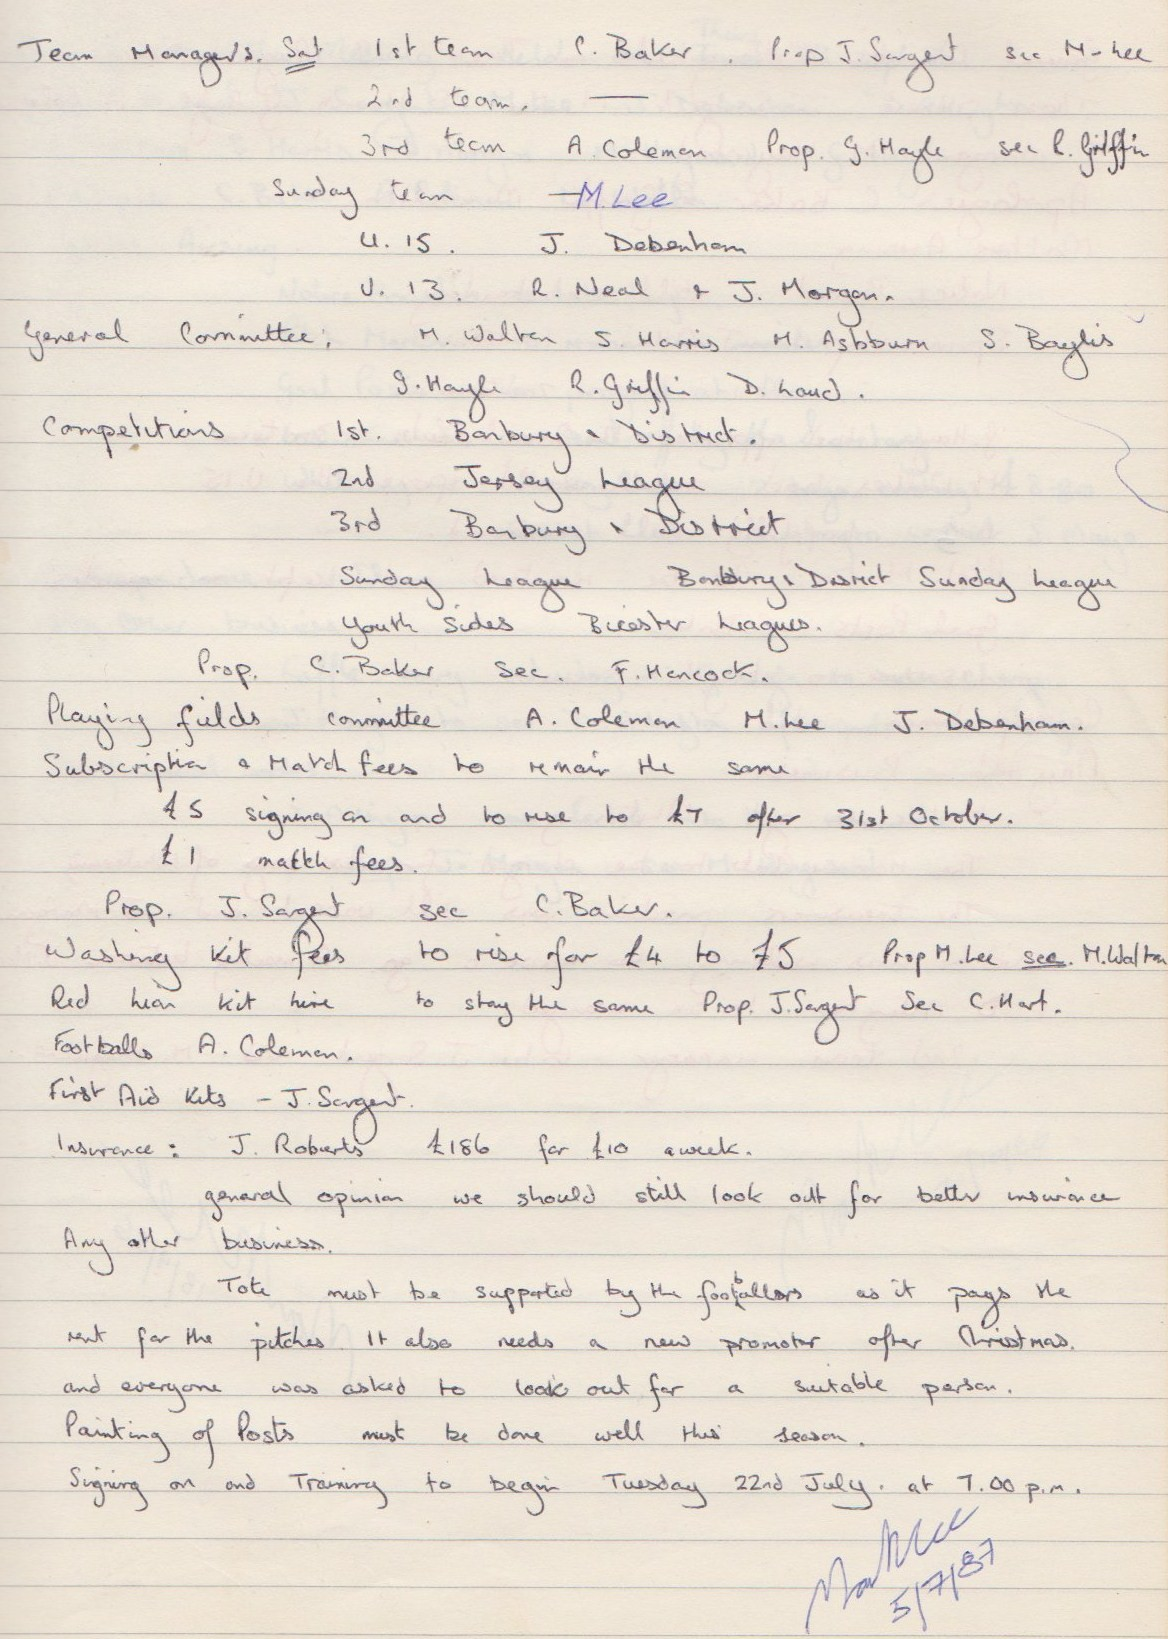 Team Managers. Sat 1st team C. Baker. Prop J. Sargent sec M-Lee
2nd team. —
3rd team A. Coleman Prop. G. Hayle sec R. Griffin
Sunday team — M. Lee
U. 15. J. Debenham
U. 13. R. Neal & J. Morgan.
General Committee; M. Walton S. Harris M. Ashburn S. Baylis
G. Hayle R. Griffin D. Loud.
Competitions 1st. Banbury & District.
2nd Jersey League
3rd Banbury & District
Sunday League Banbury & Disrict Sunday League
Youth Sides Bicester Leagues.
Prop. C. Baker sec. F. Hancock.
Playing fields committee A. Coleman M. Lee J. Debenham.
Subscription & Match fees to remain the same
£5 signing on and to rise to £7 after 31st October.
£1 match fees.
Prop. J. Sargent sec C. Baker.
Washing Kit fees to rise for £4 to £5 Prop M. Lee sec. M. Walton
Red Lion Kit hire to stay the same Prop. J. Sargent Sec C. Hart.
Footballs A. Coleman.
First Aid Kits - J. Sargent.
Insurance: J. Roberts £186 for £10 a week.
general opinion we should still look out for better insurance
Any other business.
Tote must be supported by the footballers as it pays the
rent for the pitches. It also needs a new promoter after Christmas.
and everyone was asked to look out for a suitable person.
Painting of Posts must be done well this season.
Signing on and Training to begin Tuesday 22nd July. at 7.00 p.m.
Mark Lee
5/7/87